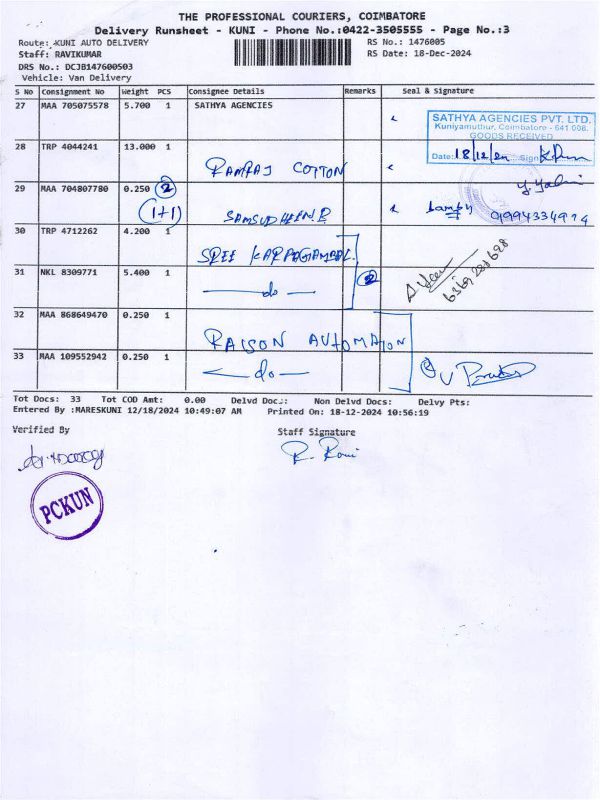 THE PROFESSIONAL COURIERS, COIMBATORE
Delivery Runsheet - KUNI - Phone No.:0422-3505555 - Page No.:3
Route: KUNI AUTO DELIVERY RS No.: 1476005
Staff: RAVIKUMAR RS Date: 18-Dec-2024
DRS No.: DCJB147600503
Vehicle: Van Delivery
S No Consignment No Weight PCS Consignee Details Remarks Seal & Signature
27 MAA 705075578 5.700 1 SATHYA AGENCIES
SATHYA AGENCIES PVT. LTD.
Kuniyamuthur, Coimbatore - 641 008.
GOODS RECEIVED
Date: 18/12/24 Sign
28 TRP 4044241 13.000 1
RAMRAJ COTTON
29 MAA 704807780 0.250 2 1
(1+1) SAMSUDHEEN E 9994334974
30 TRP 4712262 4.200 1
SREE KARPAGAMBAL
31 NKL 8309771 5.400 1
do 2
32 MAA 868649470 0.250 1
RAISON AUTOMATION
33 MAA 109552942 0.250 1
do
Tot Docs: 33 Tot COD Amt: 0.00 Delvd Doc.: Non Delvd Docs: Delvy Pts:
Entered By :MARESKUNI 12/18/2024 10:49:07 AM Printed On: 18-12-2024 10:56:19
Verified By Staff Signature
PCKUN